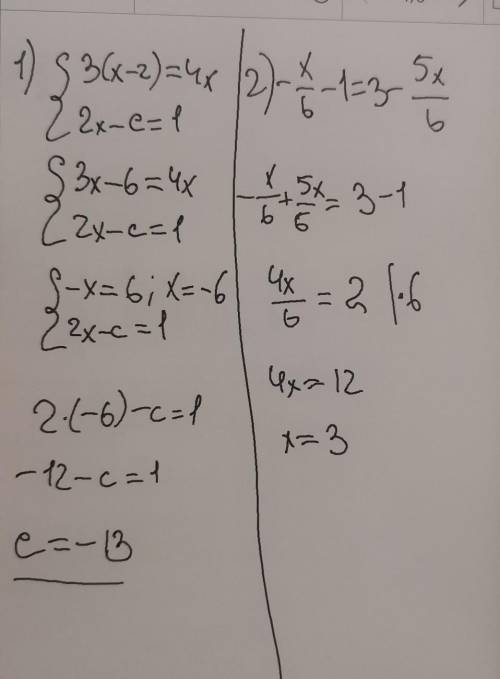 1) { 3(x-2)=4x
2x-c=1
{ 3x-6=4x
2x-c=1
{ -x=6; x=-6
2x-c=1
2·(-6)-c=1
-12-c=1
c=-13
2) -x/6-1=3-5x/6
-x/6+5x/6=3-1
4x/6=2 |·6
4x=12
x=3